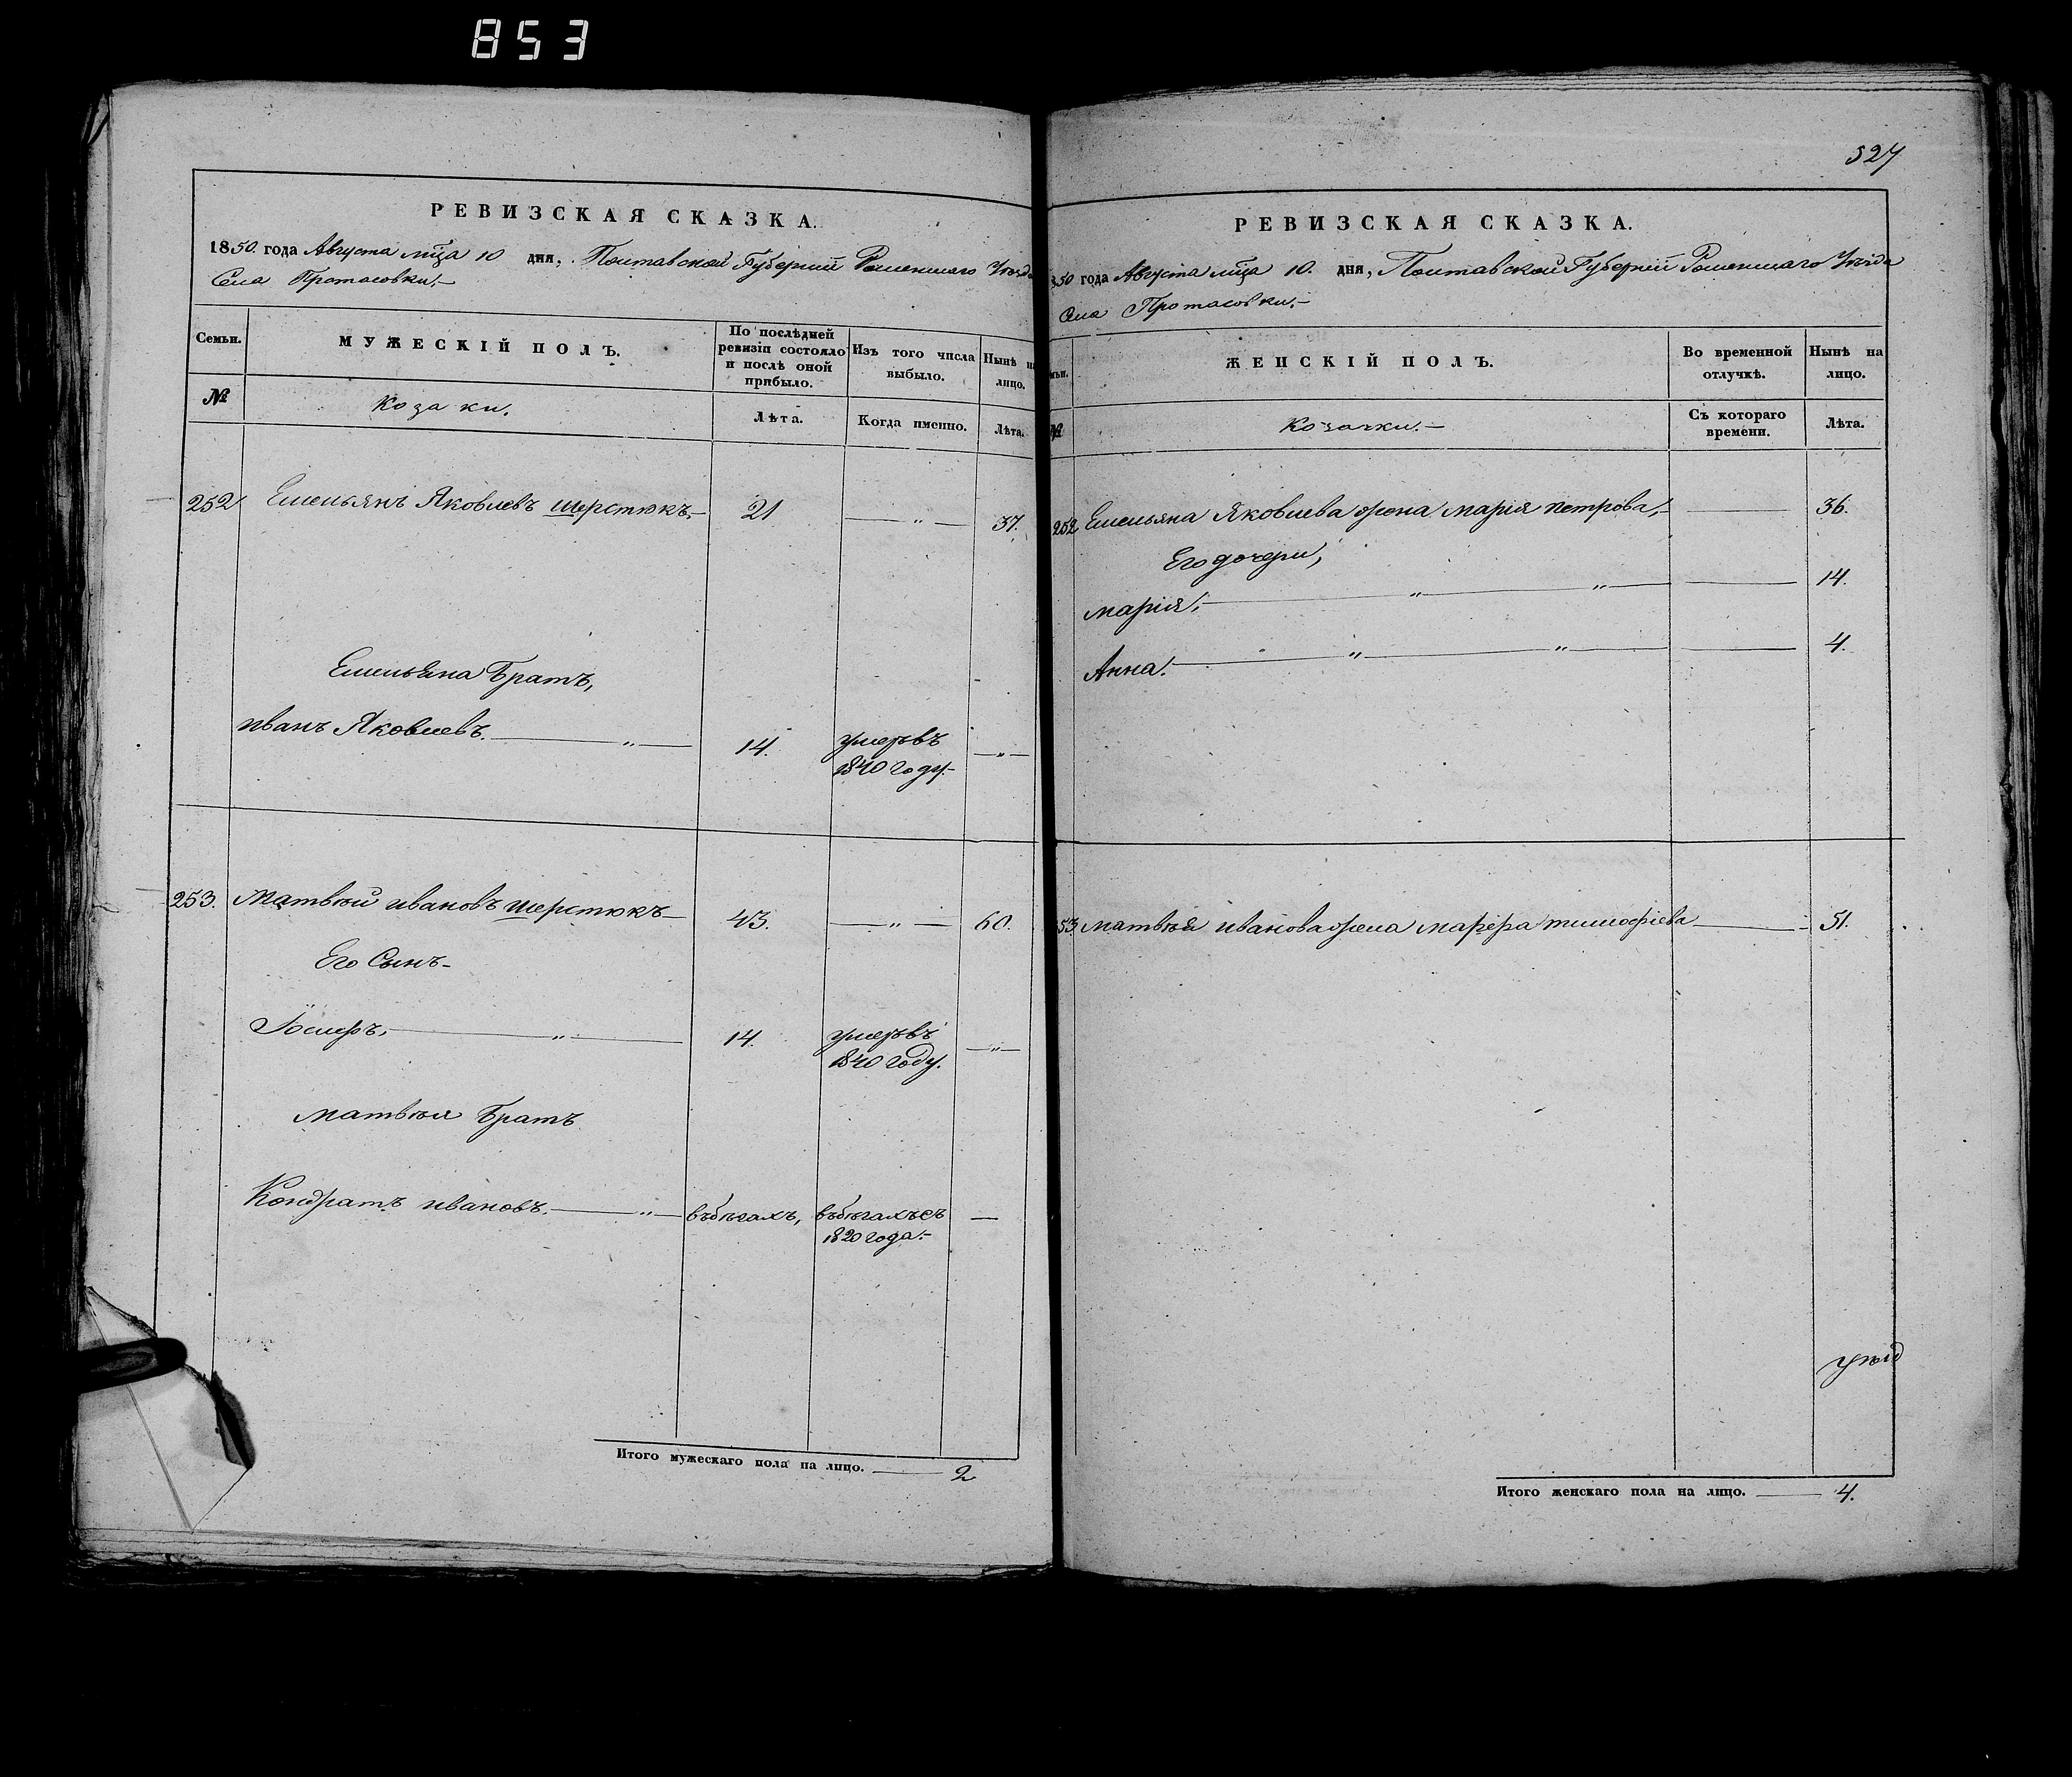 853
РЕВИЗСКАЯ СКАЗКА.
1850. года Августа мца 10 дня, Полтавской Губернии Роменскаго Уѣзда
Села Протасовки.
Семьи.
МУЖЕСКІЙ ПОЛЪ.
По послѣдней ревизіи состояло и послѣ оной прибыло.
Изъ того числа выбыло.
Нынѣ на лицо.
№
Козаки.
Лѣта.
Когда именно.
Лѣта.
252 Емельянъ Яковлевъ Шерстюкъ. 21 — " — 37.
Емельяна Братъ,
иванъ Яковлевъ. — " — 14. умеръ въ — " —
1840 году.
253. Матвѣй ивановъ Шерстюкъ 43. — " — 60.
Его Сынъ
14. умеръ въ — " —
1840 году.
Матвѣя Братъ
Кондратъ ивановъ. — " — въ бѣгахъ, въ бѣгахъ съ —
1820 года.
Итого мужескаго пола на лицо. — 2
527
РЕВИЗСКАЯ СКАЗКА.
850 года Августа мца 10. дня, Полтавской Губерніи Роменскаго Уѣзда
Села Протасовки.
ЖЕНСКІЙ ПОЛЪ.
Во временной отлучкѣ.
Нынѣ на лицо.
№
Козачки.
Съ котораго времени.
Лѣта.
252 Емельяна Яковлева жена Марія Петрова, — 36.
Его дочери,
Марія, — " — " — 14.
Анна. — " — " — 4.
53. Матвѣя иванова жена Марфа Тимофіева — 51.
Итого женскаго пола на лицо. — 4.